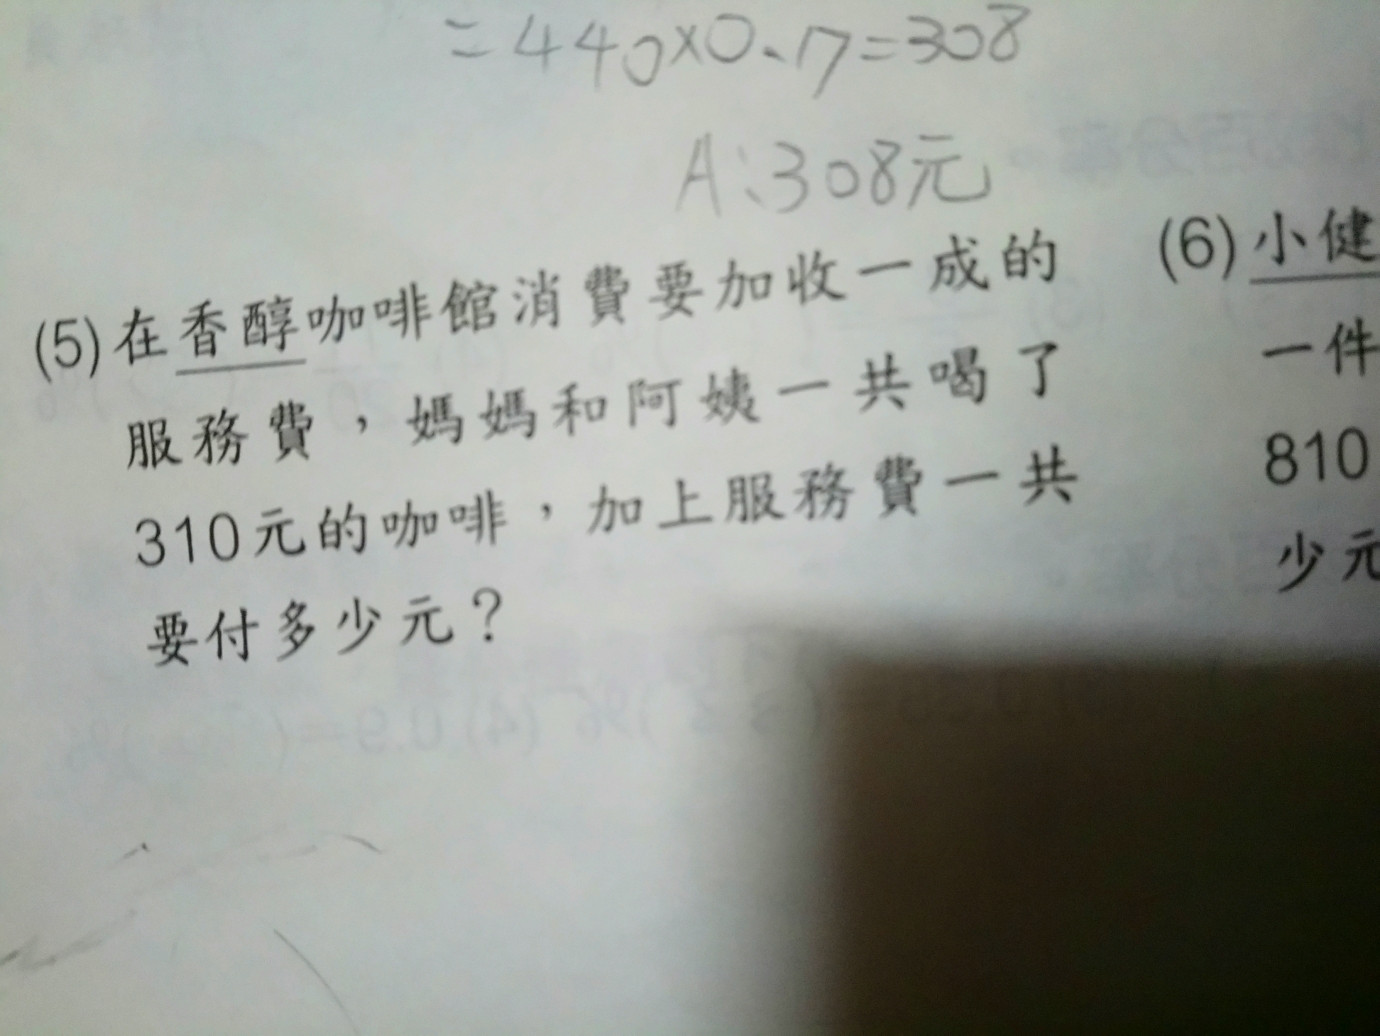 =440×0.7=308
A:308元
(5)在香醇咖啡館消費要加收一成的
服務費，媽媽和阿姨一共喝了
310元的咖啡，加上服務費一共
要付多少元？
(6)小健
一件
810
少元